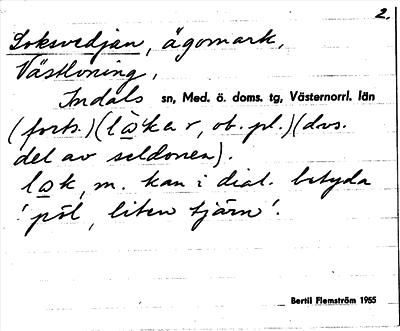 2.
Loksvedjan, ägomark,
Västloning,
Indals sn, Med. ö. doms. tg, Västernorrl. län
(forts.) (lo̲kar, ob. pl.) (dvs.
del av seldonen).
lo̲k, m. kan i dial. betyda
'pöl, liten tjärn'.
Bertil Flemström 1955